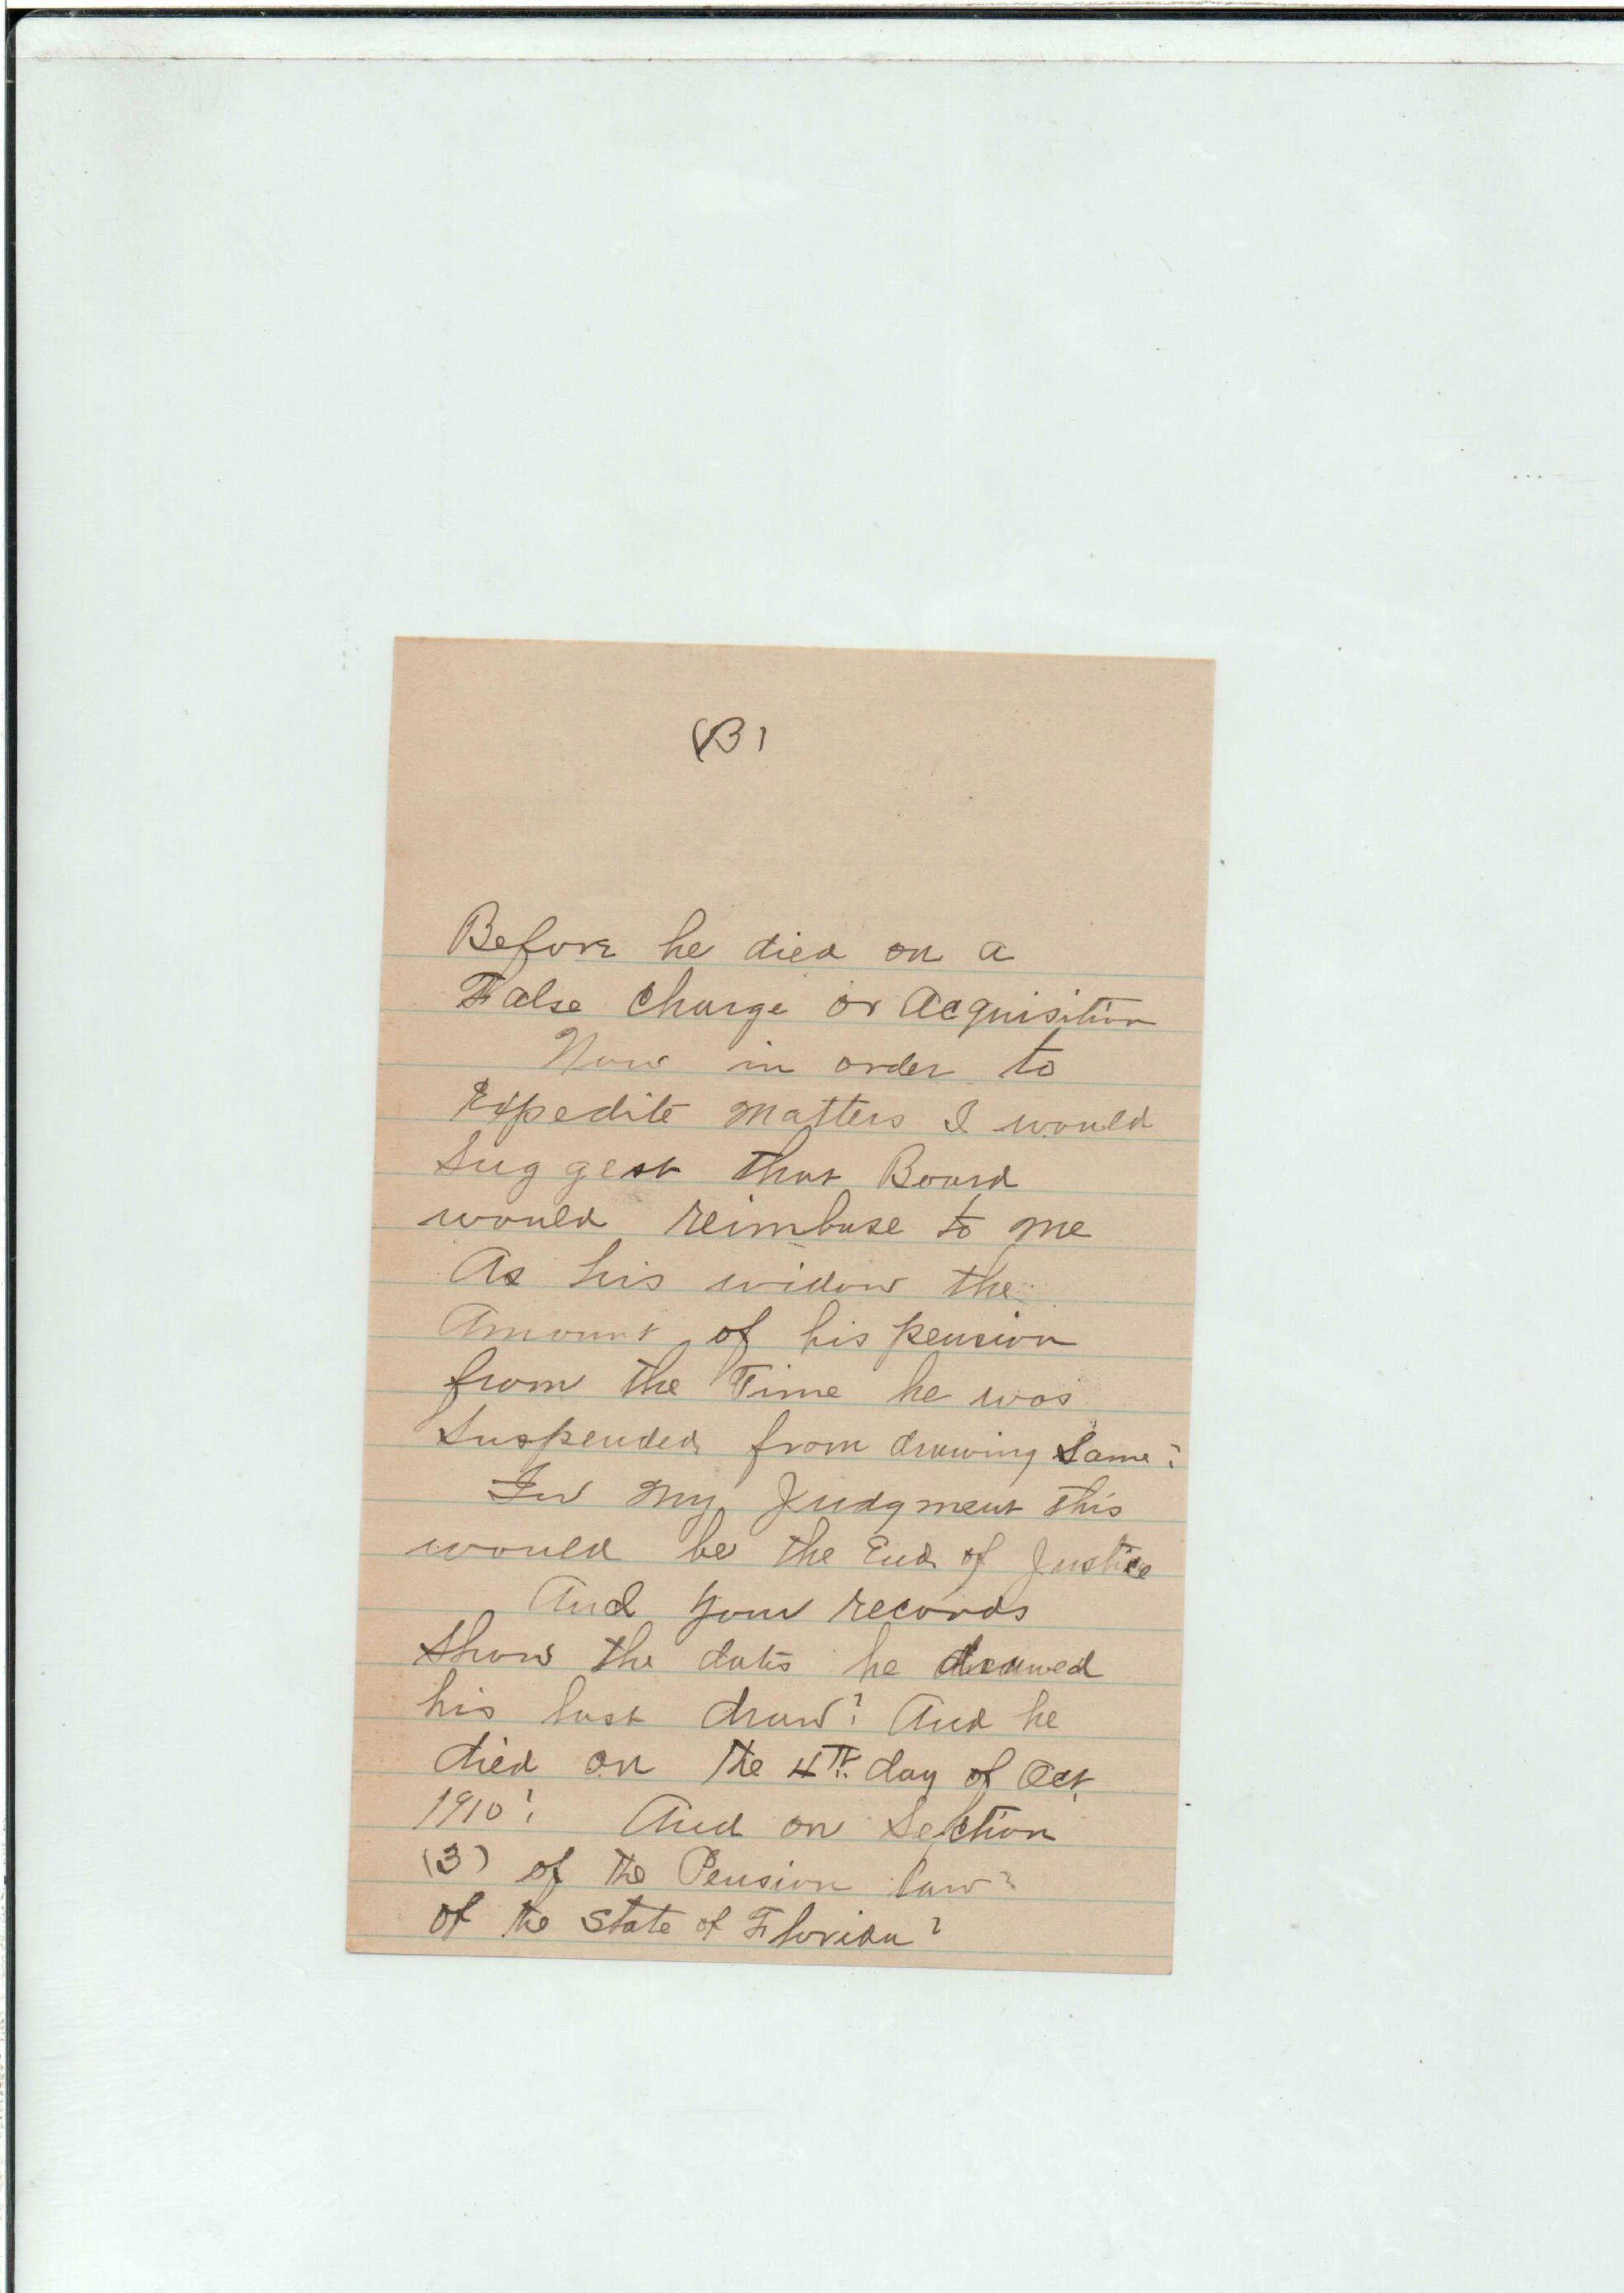 (3)
Before he died on a
False Charge or Acquisition
Now in order to
Expedite Matters I would
Suggest that Board
would reimbuse to me
As his widow the
Amount of his pension
from the Time he was
Suspended from drawing Same?
In My Judgment this
would be the End of Justice
And your records
Show the dates he drawed
his last draw? And he
died on the 4th day of Oct
1910? And on Section
(3) of the Pension law?
of the State of Florida?